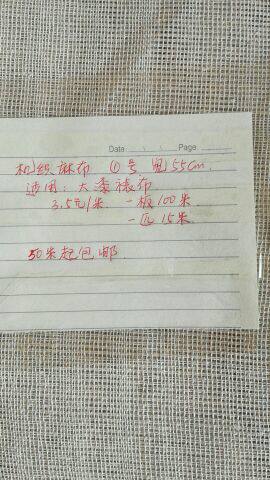 Date Page
机织麻布 ①号 宽55cm.
适用：大漆裱布
3.5元/米 一板100米
一匹15米
50米起包邮